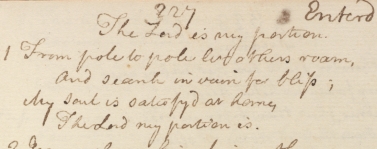 227 Enterd
The Lord is my portion.
1 From pole to pole let others roam,
And search in vain for bliss;
My soul is satisfy'd at home,
The Lord my portion is.